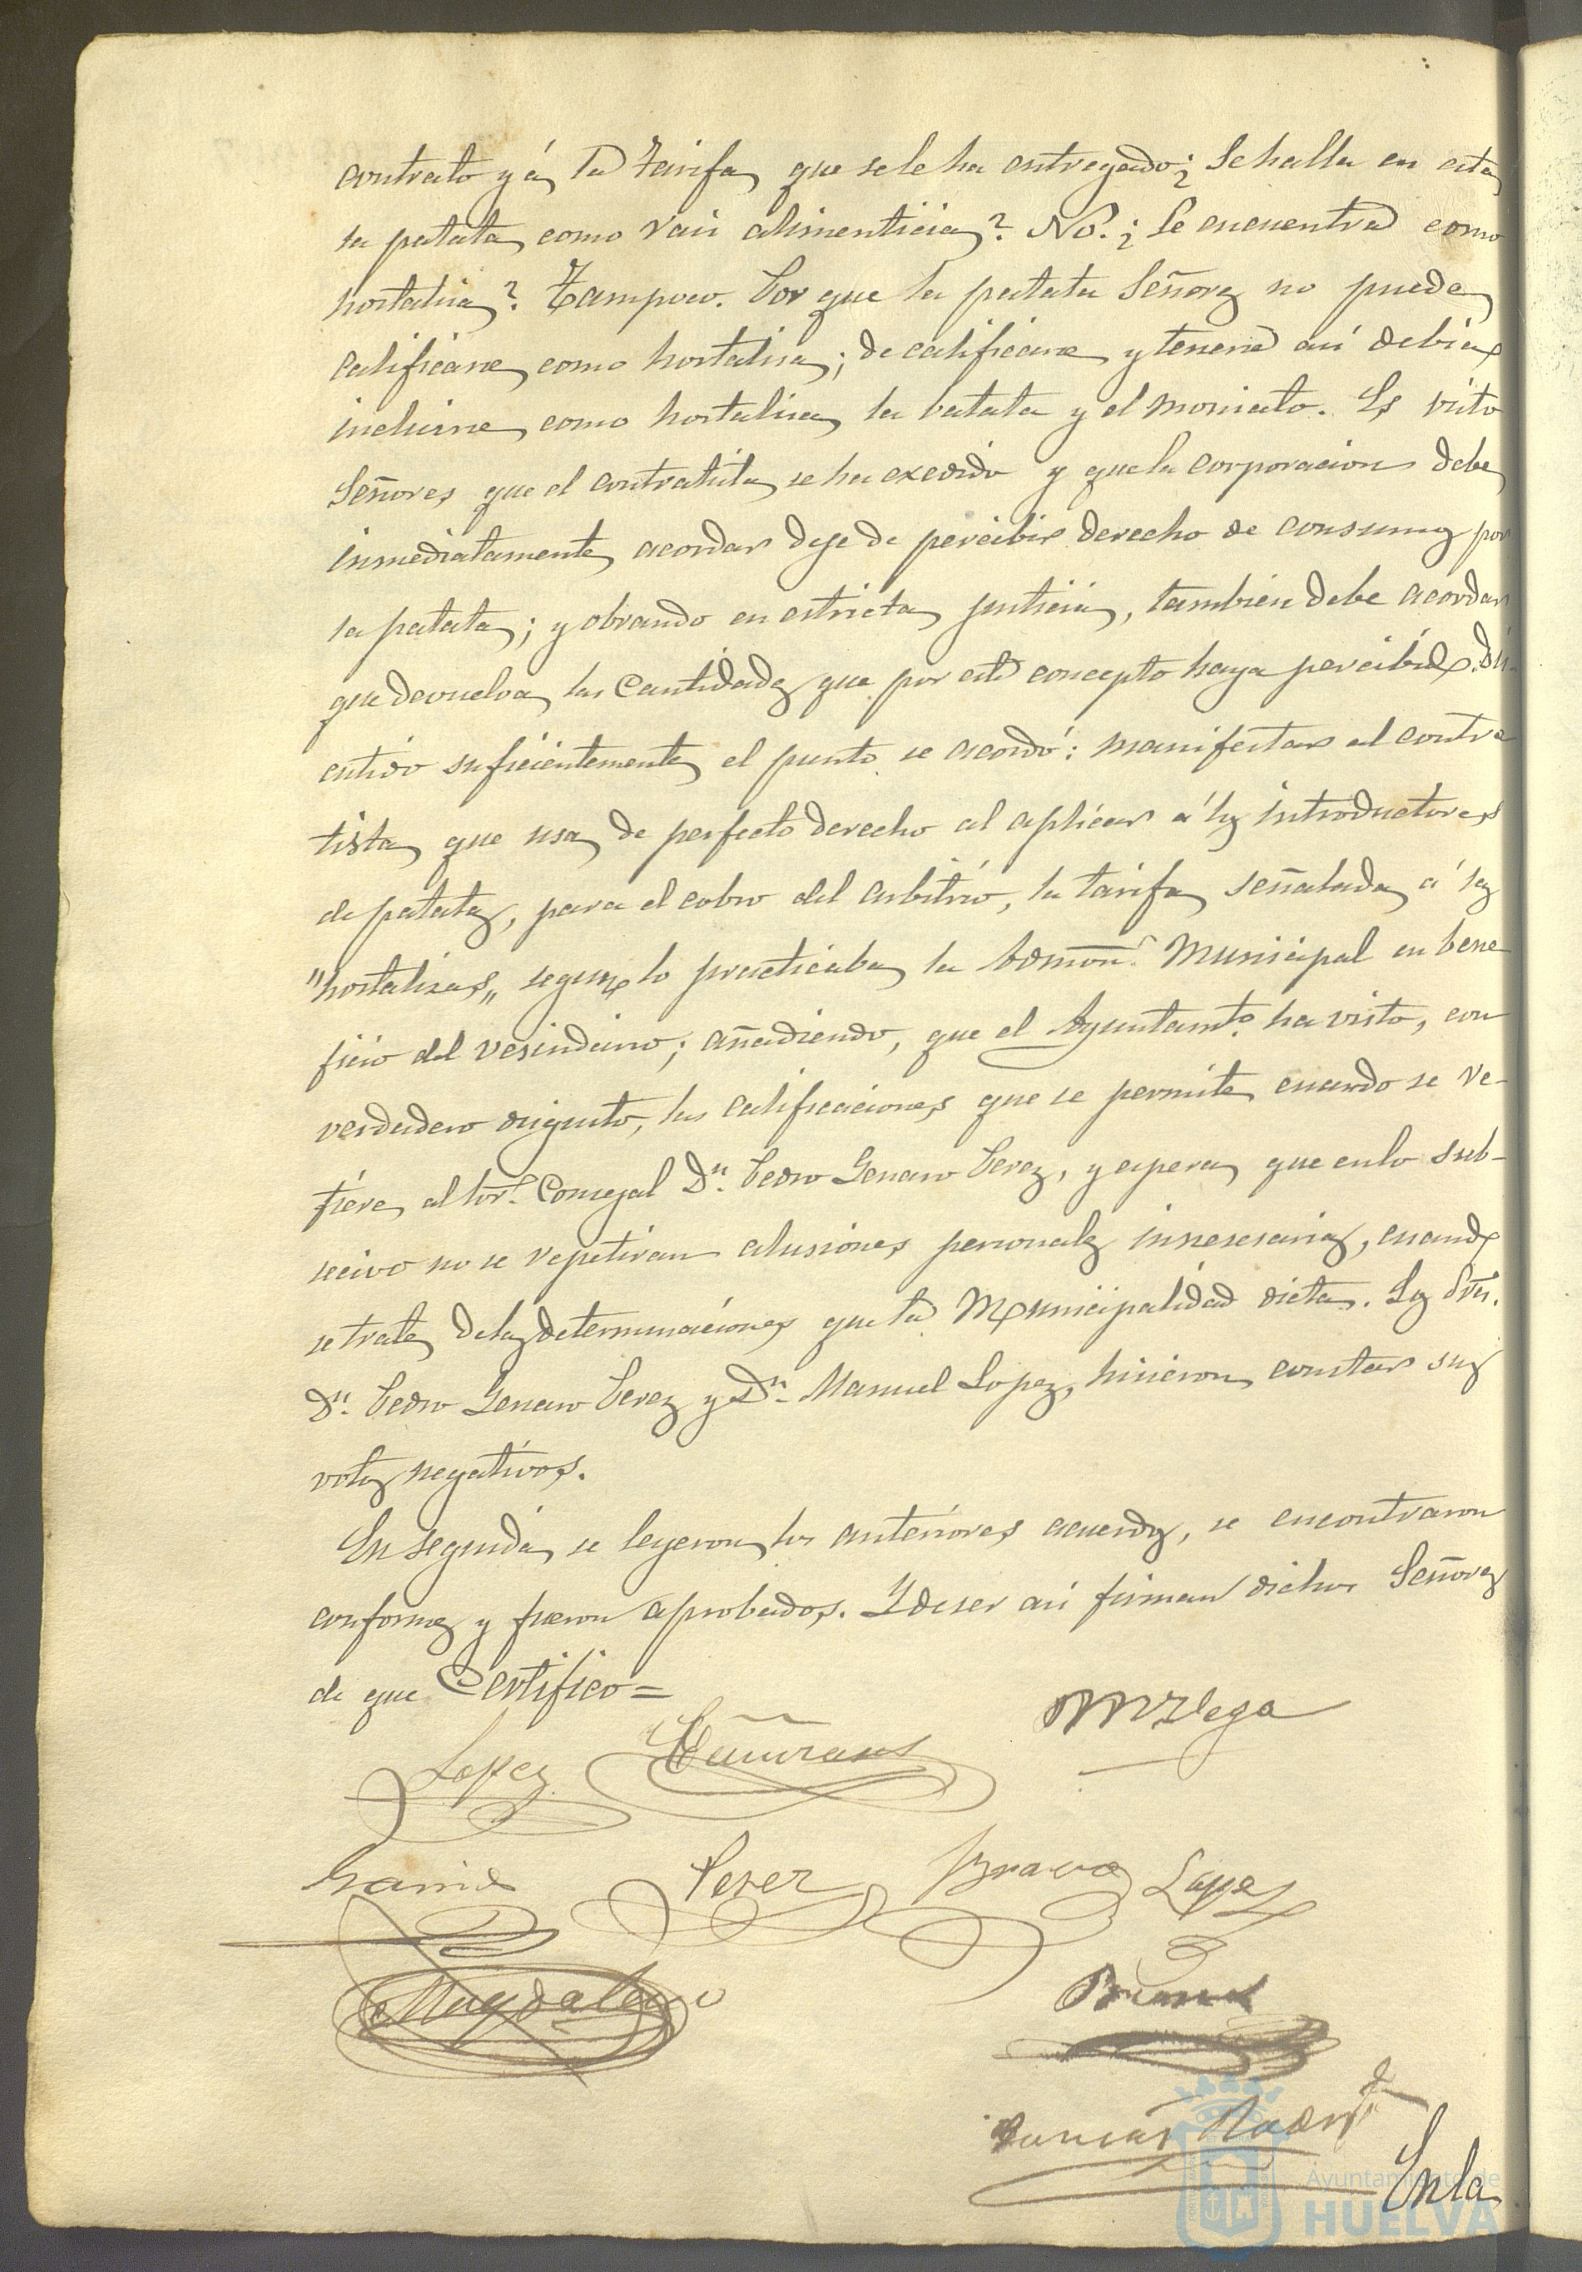 contrato y á la Tarifa que se le ha entregado; ¿Se halla en esta
la patata como raiz alimenticia? No. ¿Se encuentra como
hortaliza? Tampoco. Por que la patata Señores no puede
calificarse como hortaliza; de calificarse y tenerse asi debia
incluirse como hortaliza la batata y el moniato. Es visto
Señores que el contratista se ha excedido y que la corporacion debe
inmediatamente acordar deje de percibir derecho de consumos por
la patata; y obrando en estricta justicia, tambien debe acordar
que devuelva las cantidades que por este concepto haya percibido. Dis-
cutido suficientemente el punto se acordó: manifestar al contra
tista que usa de perfecto derecho al aplicar á los introductores
de patatas, para el cobro del arbitrio, la tarifa señalada á las
"hortalizas" segun lo practicaba la Admon. Municipal en bene
ficio del vesindario; añadiendo, que el Ayuntamto. ha visto, con
verdadero disgusto, las calificaciones que se permite cuando se re-
fiere al Sor. Consejal Dn. Pedro Genaro Perez, y espera que en lo sub-
secivo no se repetiran alusiones personales innesesarias, cuando
se trate de las determinaciones que la Municipalidad dicta. Los Sres.
Dn. Pedro Genaro Perez y Dn. Manuel Lopez, hicieron constar sus
votos negativos.
En seguida se leyeron los anteriores acuerdos, se encontraron
conformes y fueron aprobados. Y de ser asi firman dichos Señores
de que Certifico =
Lopez
MVega
Garrido Perez Bravo Lopez
Magdaleno
En la
Ayuntamiento de
HUELVA